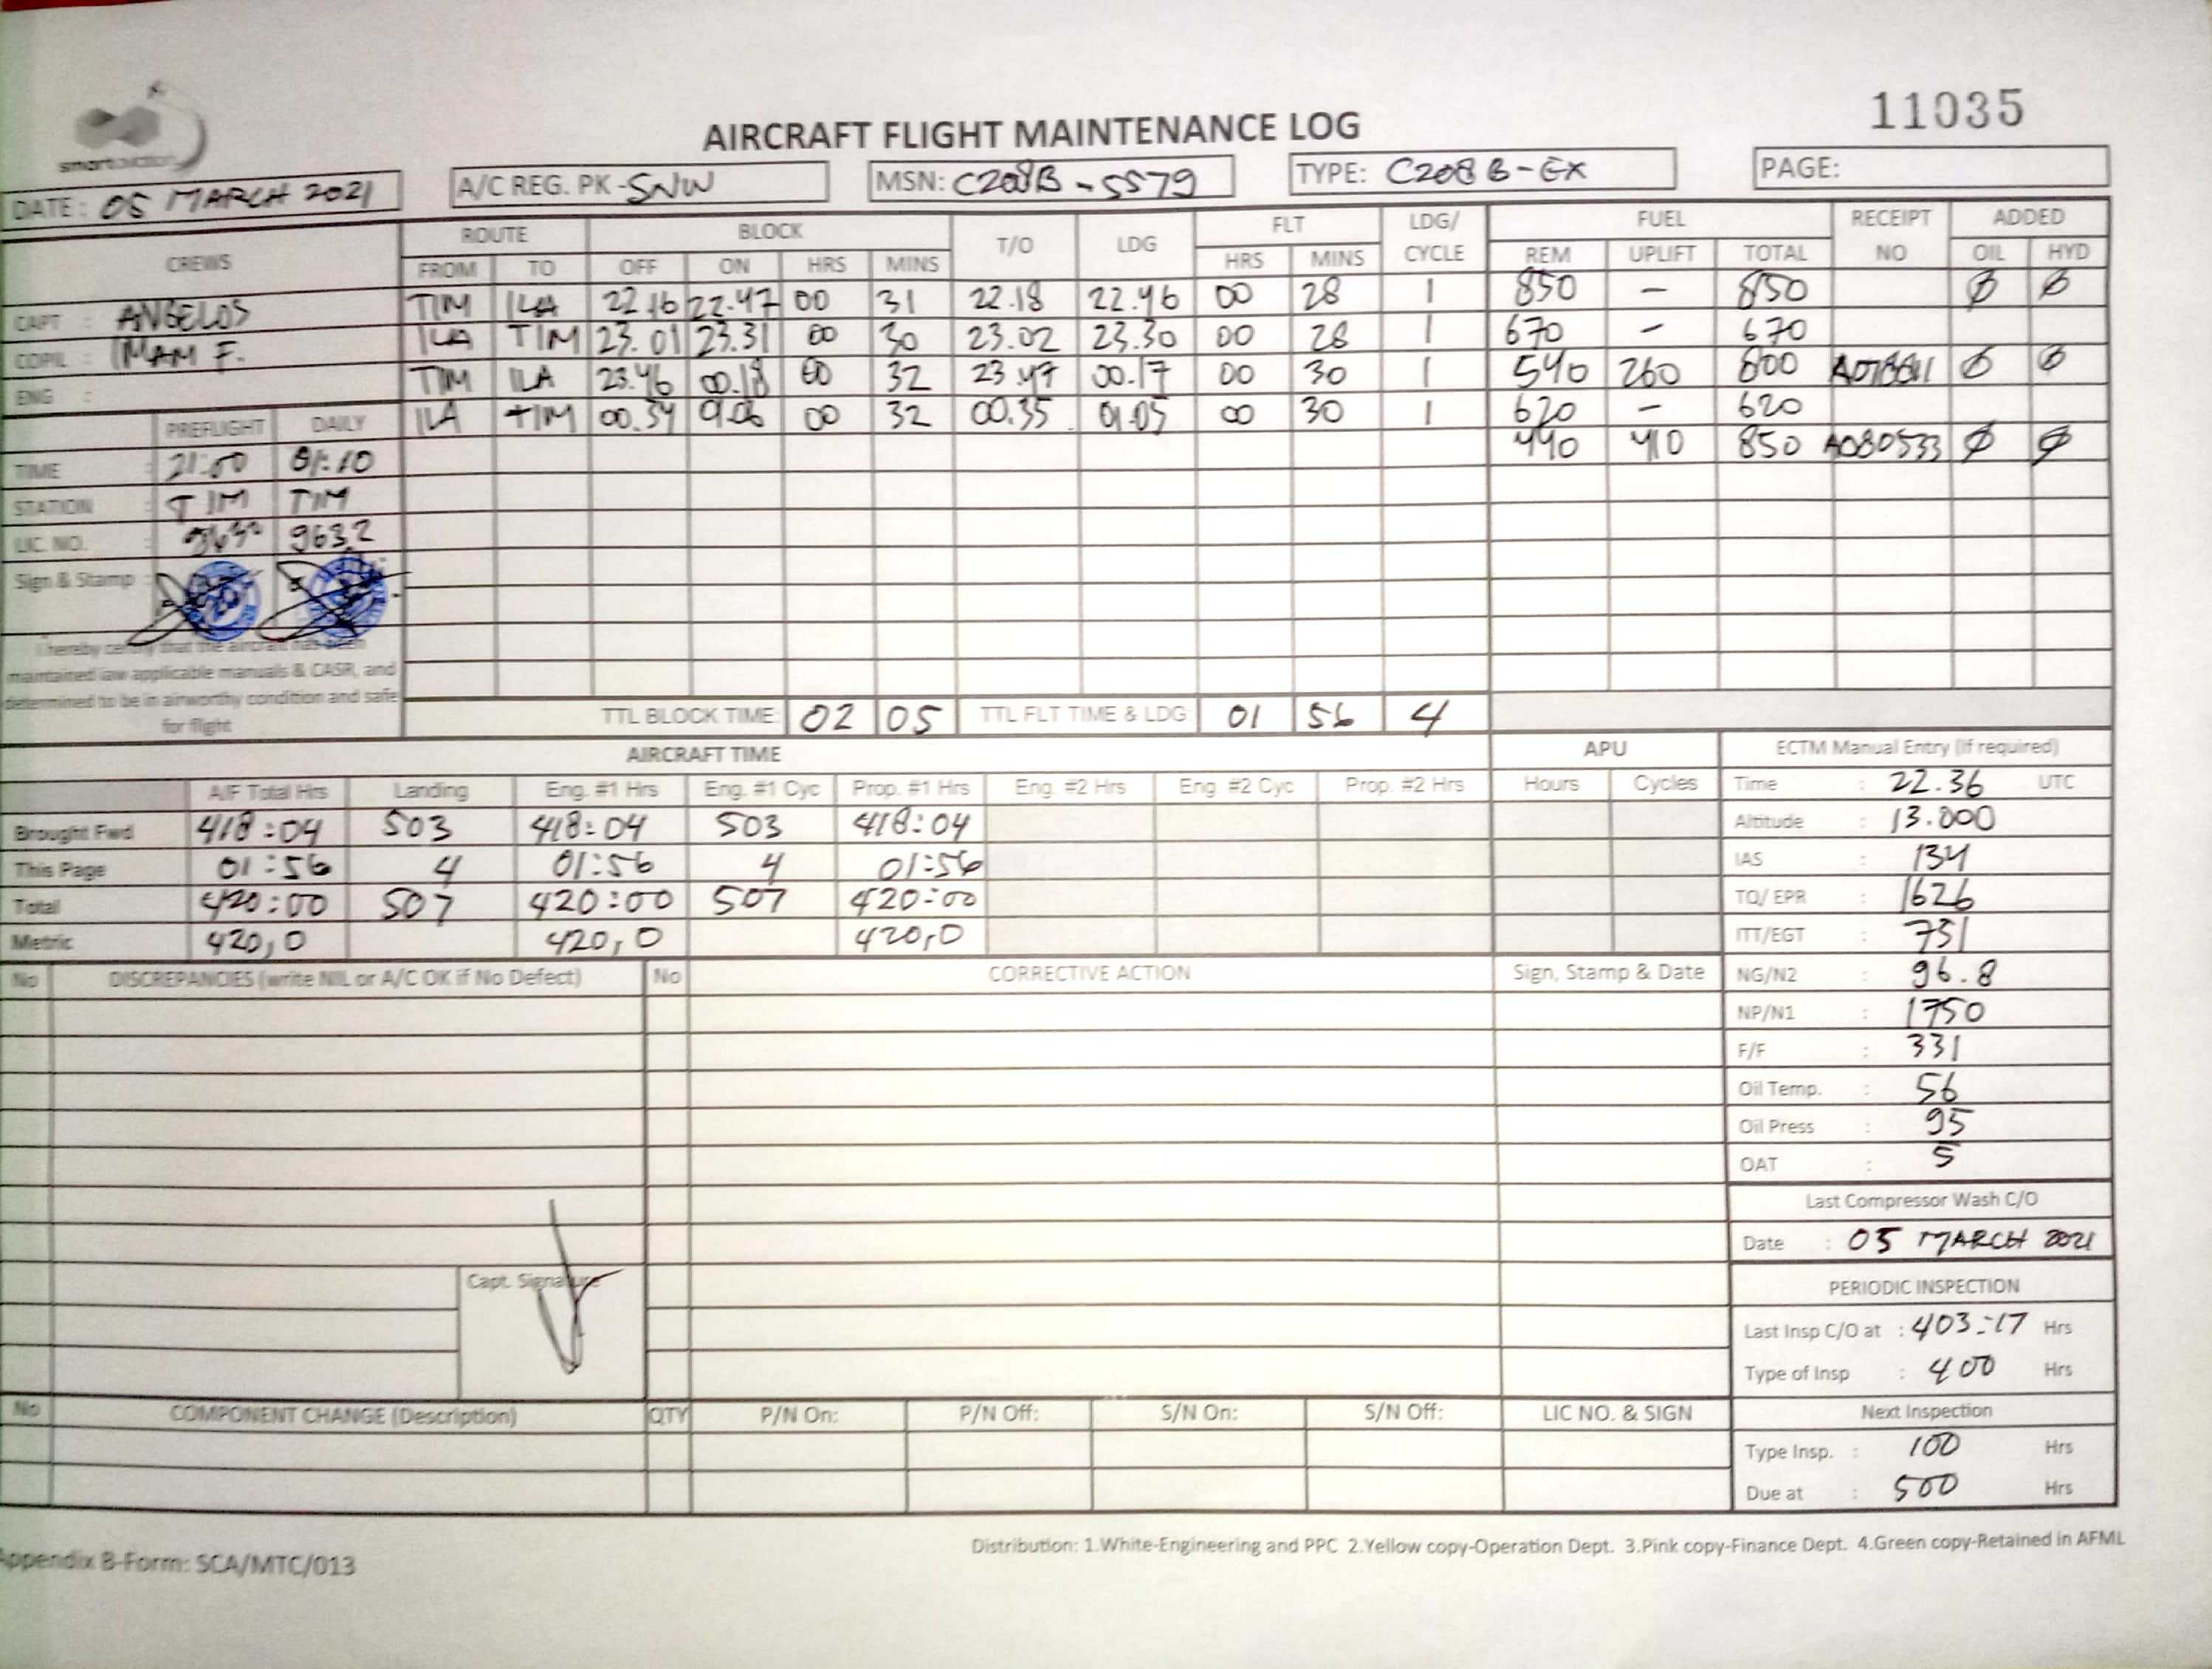 11035
smart aviation
AIRCRAFT FLIGHT MAINTENANCE LOG
DATE : 05 MARCH 2021 A/C REG. PK-SNW MSN: C208B-5579 TYPE: C208B-EX PAGE:
CREWS ROUTE BLOCK T/O LDG FLT LDG/ CYCLE FUEL RECEIPT NO ADDED
FROM TO OFF ON HRS MINS HRS MINS REM UPLIFT TOTAL OIL HYD
CAPT : ANGELOS TIM ILA 22.16 22.47 00 31 22.18 22.46 00 28 1 850 - 850 Ø Ø
COPIL : IMAM F. ILA TIM 23.01 23.31 00 30 23.02 23.30 00 28 1 670 - 670
ENG : TIM ILA 23.46 00.18 00 32 23.47 00.17 00 30 1 540 260 800 Ø Ø
ILA TIM 00.34 32 00.35 01.05 00 30 1 620 - 620
440 410 850 A080533 Ø Ø
PREFLIGHT DAILY
TIME : 21:00 01:10
STATION : TIM TIM
LIC. NO. : 9632
Sign & Stamp :
I hereby certify that the aircraft has been
maintained iaw applicable manuals & CASR, and
determined to be in airworthy condition and safe
for flight
TTL BLOCK TIME: 02 05 TTL FLT TIME & LDG 01 56 4
AIRCRAFT TIME APU ECTM Manual Entry (If required)
A/F Total Hrs Landing Eng. #1 Hrs Eng. #1 Cyc Prop. #1 Hrs Eng. #2 Hrs Eng. #2 Cyc Prop. #2 Hrs Hours Cycles Time : 22.36 UTC
Brought Fwd 418:04 503 418:04 503 418:04 Altitude : 13.000
This Page 01:56 4 01:56 4 01:56 IAS : 134
Total 420:00 507 420:00 507 420:00 TQ/ EPR : 1626
Metric 420,0 420,0 420,0 ITT/EGT : 751
No DISCREPANCIES (write NIL or A/C OK if No Defect) No CORRECTIVE ACTION Sign, Stamp & Date NG/N2 : 96.8
NP/N1 : 1750
F/F : 331
Oil Temp. : 56
Oil Press : 95
OAT : 5
Last Compressor Wash C/O
Date : 05 MARCH 2021
Capt. Signature
PERIODIC INSPECTION
Last Insp C/O at : 403:17 Hrs
Type of Insp : 400 Hrs
No COMPONENT CHANGE (Description) QTY P/N On: P/N Off: S/N On: S/N Off: LIC NO. & SIGN Next Inspection
Type Insp. : 100 Hrs
Due at : 500 Hrs
Distribution: 1.White-Engineering and PPC 2.Yellow copy-Operation Dept. 3.Pink copy-Finance Dept. 4.Green copy-Retained in AFML
Appendix B-Form: SCA/MTC/013